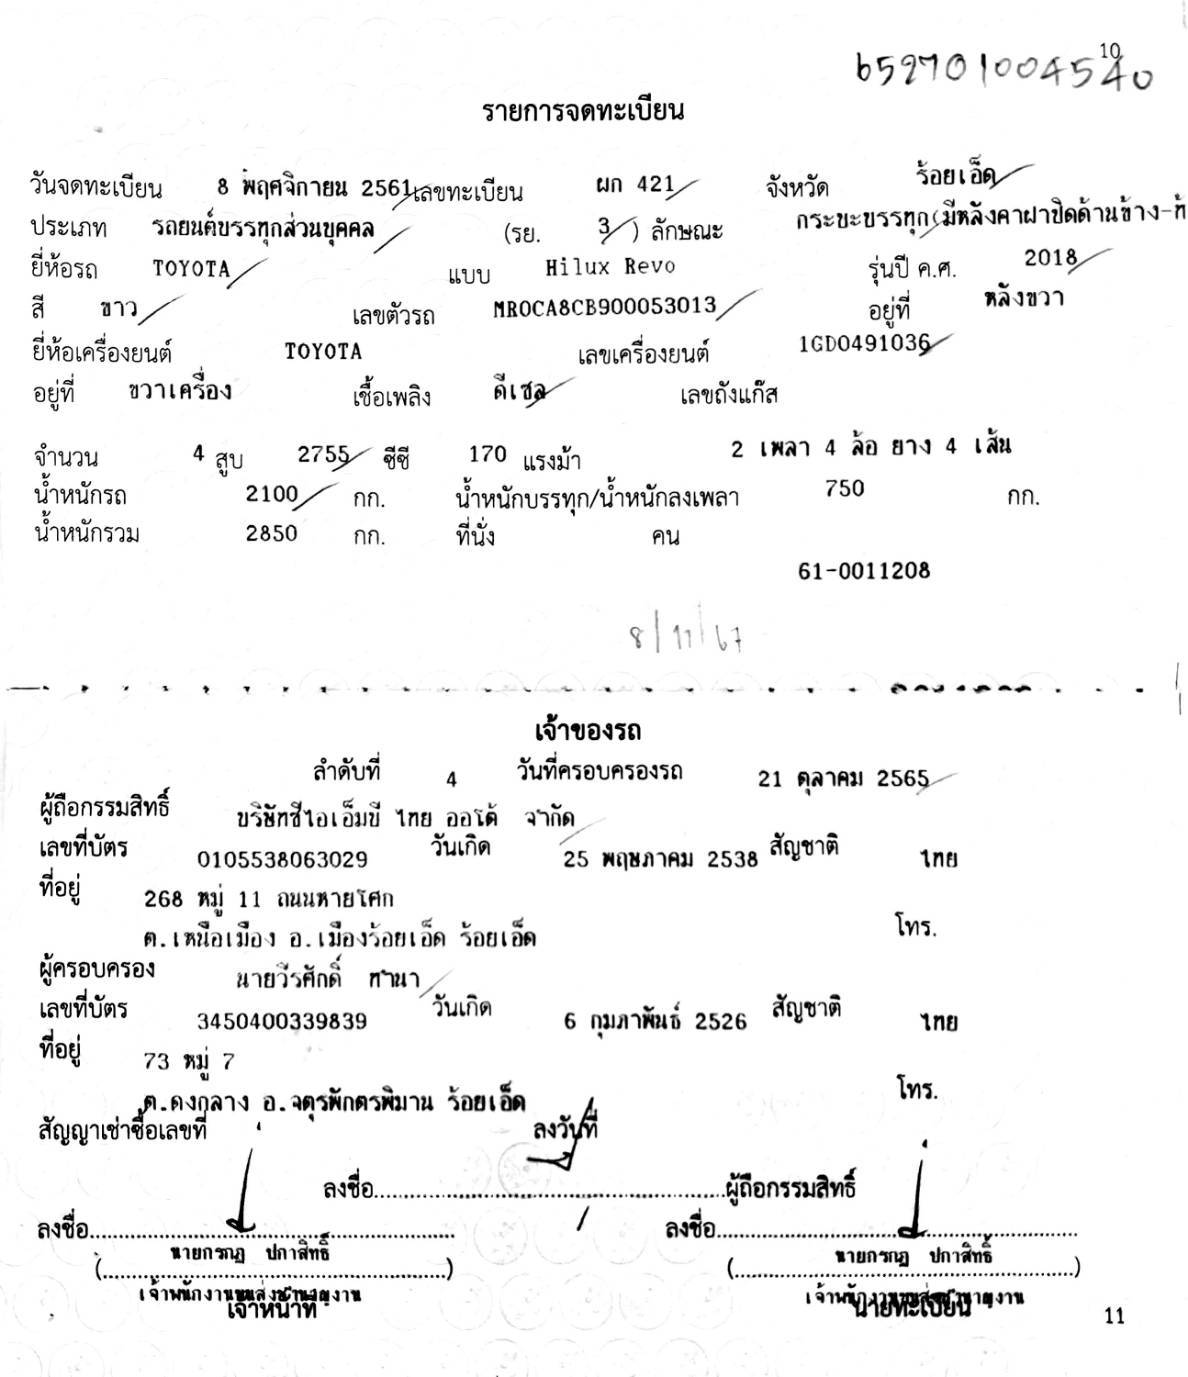 10
652701004540
รายการจดทะเบียน
วันจดทะเบียน 8 พฤศจิกายน 2561 เลขทะเบียน ผก 421 จังหวัด ร้อยเอ็ด
ประเภท รถยนต์บรรทุกส่วนบุคคล (รย. 3 ) ลักษณะ กระบะบรรทุก(มีหลังคาฝาปิดด้านข้าง-ท้
ยี่ห้อรถ TOYOTA แบบ Hilux Revo รุ่นปี ค.ศ. 2018
สี ขาว เลขตัวรถ MR0CA8CB900053013 อยู่ที่ หลังขวา
ยี่ห้อเครื่องยนต์ TOYOTA เลขเครื่องยนต์ 1GD0491036
อยู่ที่ ขวาเครื่อง เชื้อเพลิง ดีเซล เลขถังแก๊ส
จำนวน 4 สูบ 2755 ซีซี 170 แรงม้า 2 เพลา 4 ล้อ ยาง 4 เส้น
น้ำหนักรถ 2100 กก. น้ำหนักบรรทุก/น้ำหนักลงเพลา 750 กก.
น้ำหนักรวม 2850 กก. ที่นั่ง คน
61-0011208
8/11/67
เจ้าของรถ
ลำดับที่ 4 วันที่ครอบครองรถ 21 ตุลาคม 2565
ผู้ถือกรรมสิทธิ์ บริษัทซีไอเอ็มบี ไทย ออโต้ จำกัด
เลขที่บัตร 0105538063029 วันเกิด 25 พฤษภาคม 2538 สัญชาติ ไทย
ที่อยู่ 268 หมู่ 11 ถนนหายโศก
ต.เหนือเมือง อ.เมืองร้อยเอ็ด ร้อยเอ็ด โทร.
ผู้ครอบครอง นายวีรศักดิ์ ทานา
เลขที่บัตร 3450400339839 วันเกิด 6 กุมภาพันธ์ 2526 สัญชาติ ไทย
ที่อยู่ 73 หมู่ 7
ต.ดงกลาง อ.จตุรพักตรพิมาน ร้อยเอ็ด โทร.
สัญญาเช่าซื้อเลขที่ ลงวันที่
ลงชื่อ....................ผู้ถือกรรมสิทธิ์
ลงชื่อ.................... ลงชื่อ....................
นายกรกฎ ปกาสิทธิ์ นายกรกฎ ปกาสิทธิ์
(....................) (....................)
เจ้าพนักงานขนส่งชำนาญงาน เจ้าพนักงานขนส่งชำนาญงาน
เจ้าหน้าที่ นายทะเบียน
11